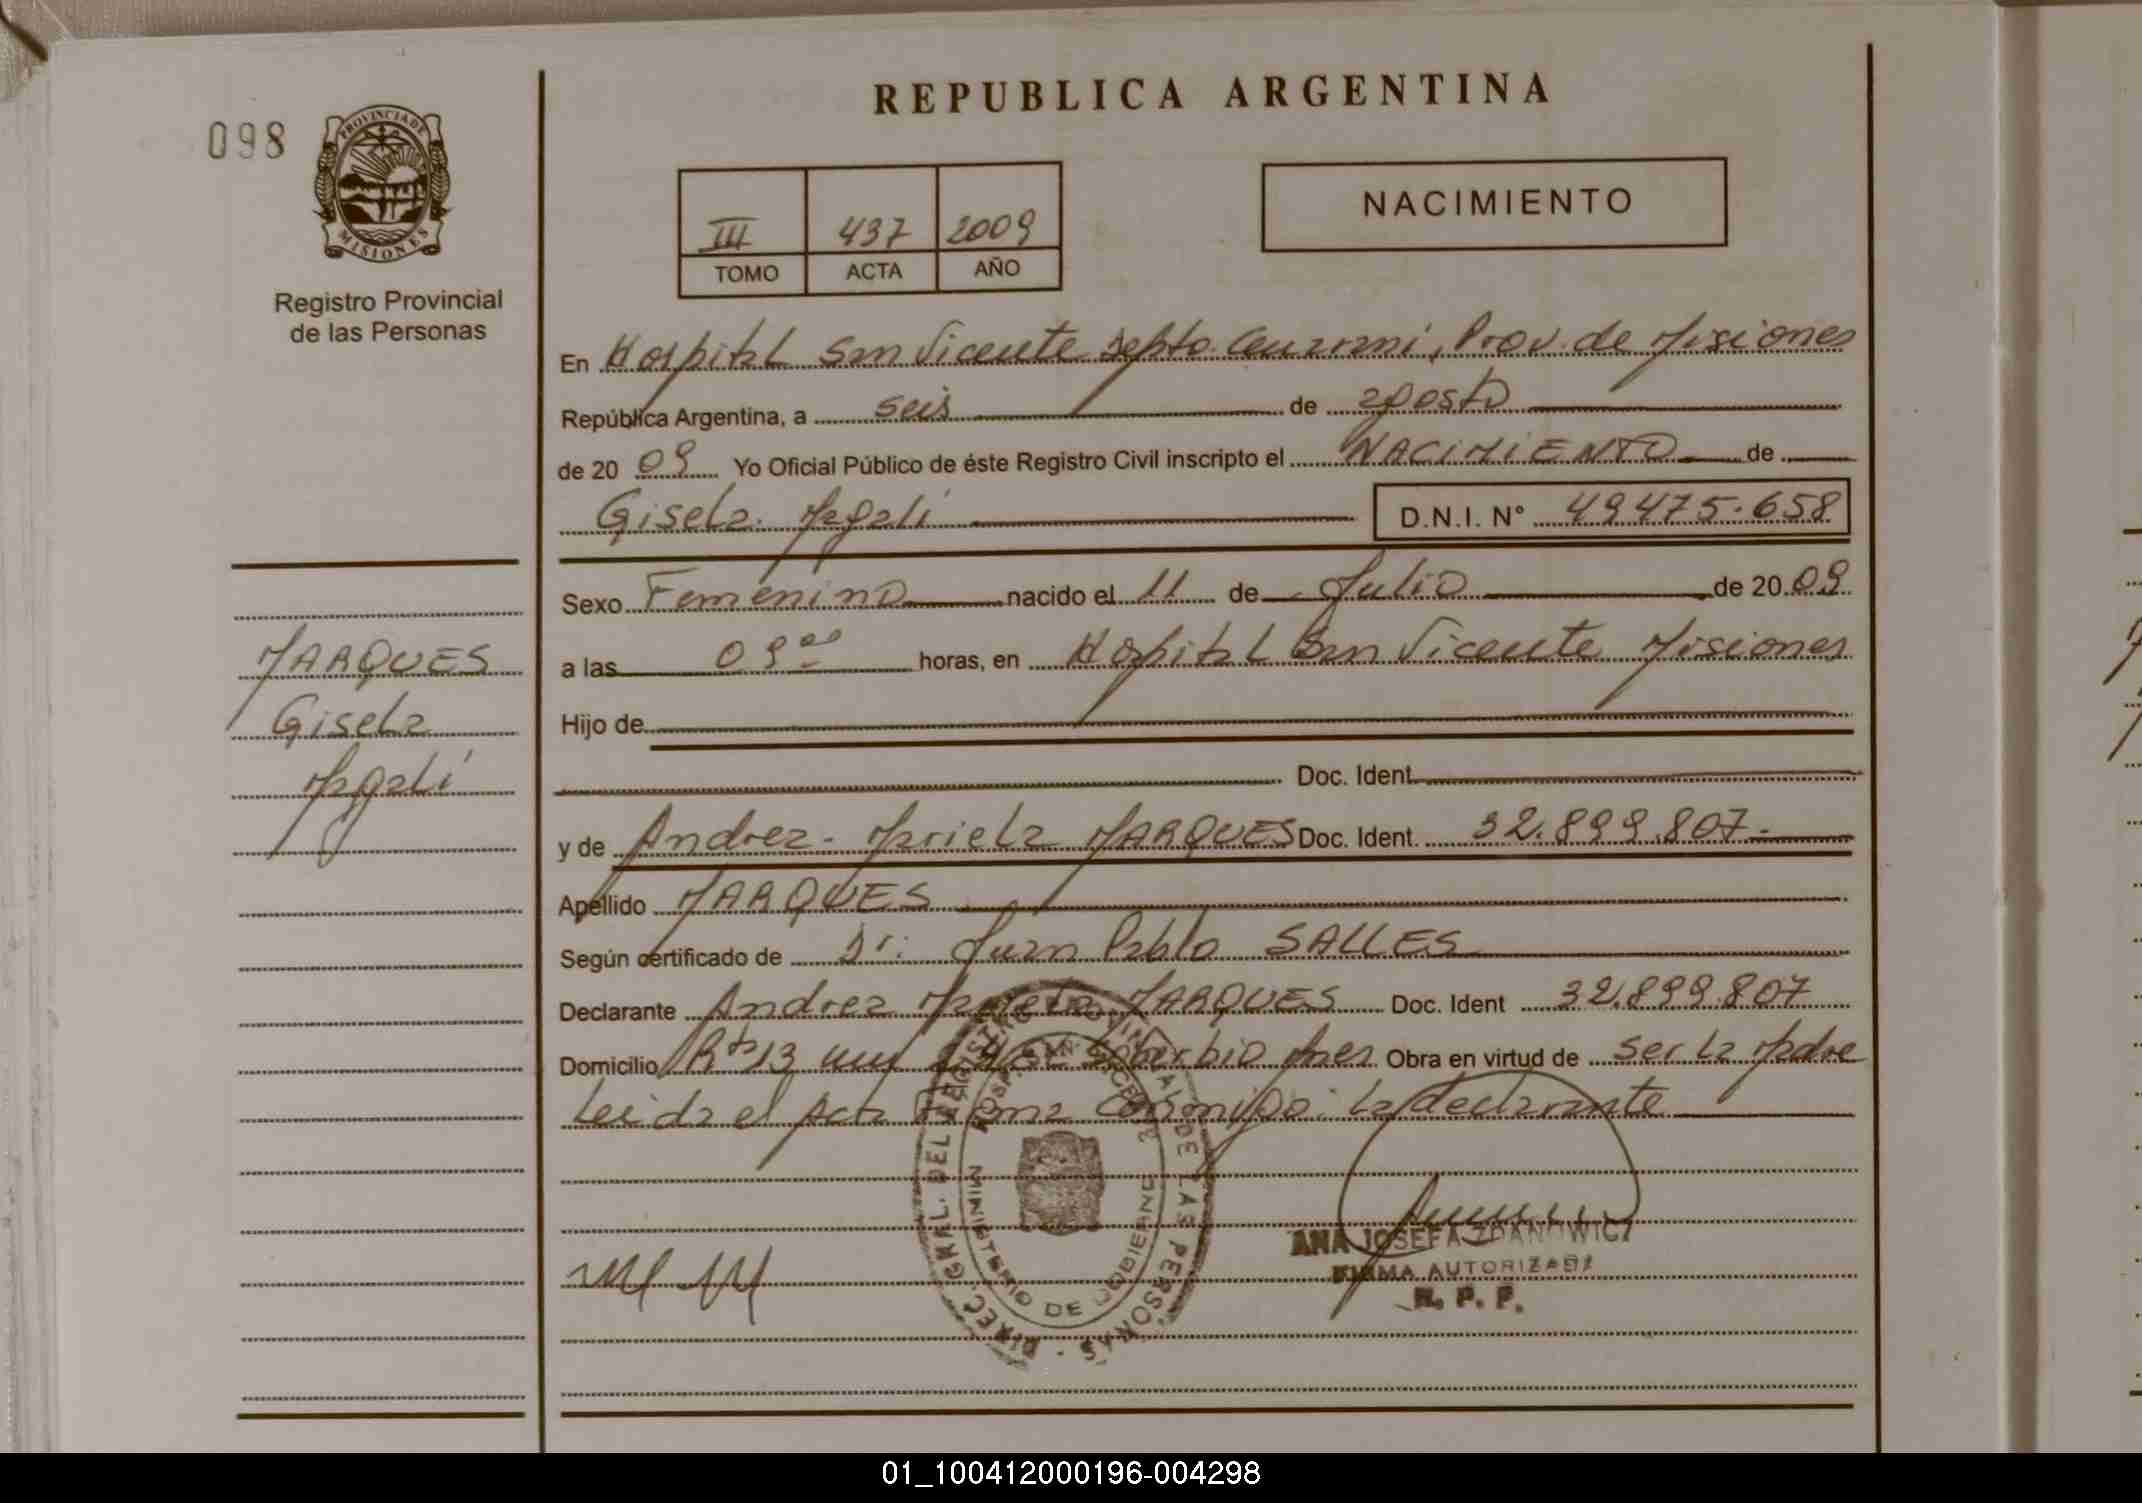 098
PROVINCIA DE
MISIONES
Registro Provincial
de las Personas
MARQUES
Gisela
Magalí
REPUBLICA ARGENTINA
III 437 2009
TOMO ACTA AÑO
NACIMIENTO
En Hospital San Vicente Depto. Guaraní, Prov. de Misiones
República Argentina, a seis de agosto
de 2009 Yo Oficial Público de éste Registro Civil inscripto el NACIMIENTO de
Gisela Magalí D.N.I. N° 49475.658
Sexo Femenino nacido el 11 de Julio de 2009
a las 09 00 horas, en Hospital San Vicente Misiones
Hijo de
Doc. Ident.
y de Andrea Mariela MARQUES Doc. Ident. 32.899.807
Apellido MARQUES
Según certificado de Dr: Juan Pablo SALLES
Declarante Andrea Mariela MARQUES Doc. Ident 32.899.807
Domicilio Rta 13 Soberbio Mnes Obra en virtud de ser la Madre
Leida el Acta firma conmigo: la declarante
DIREC. GRAL. DEL REGISTRO PROVINCIAL DE LAS PERSONAS
MINISTERIO DE GOBIERNO
ANA JOSEFA ZDANOWICZ
FIRMA AUTORIZADA
R. P. P.
01_100412000196-004298